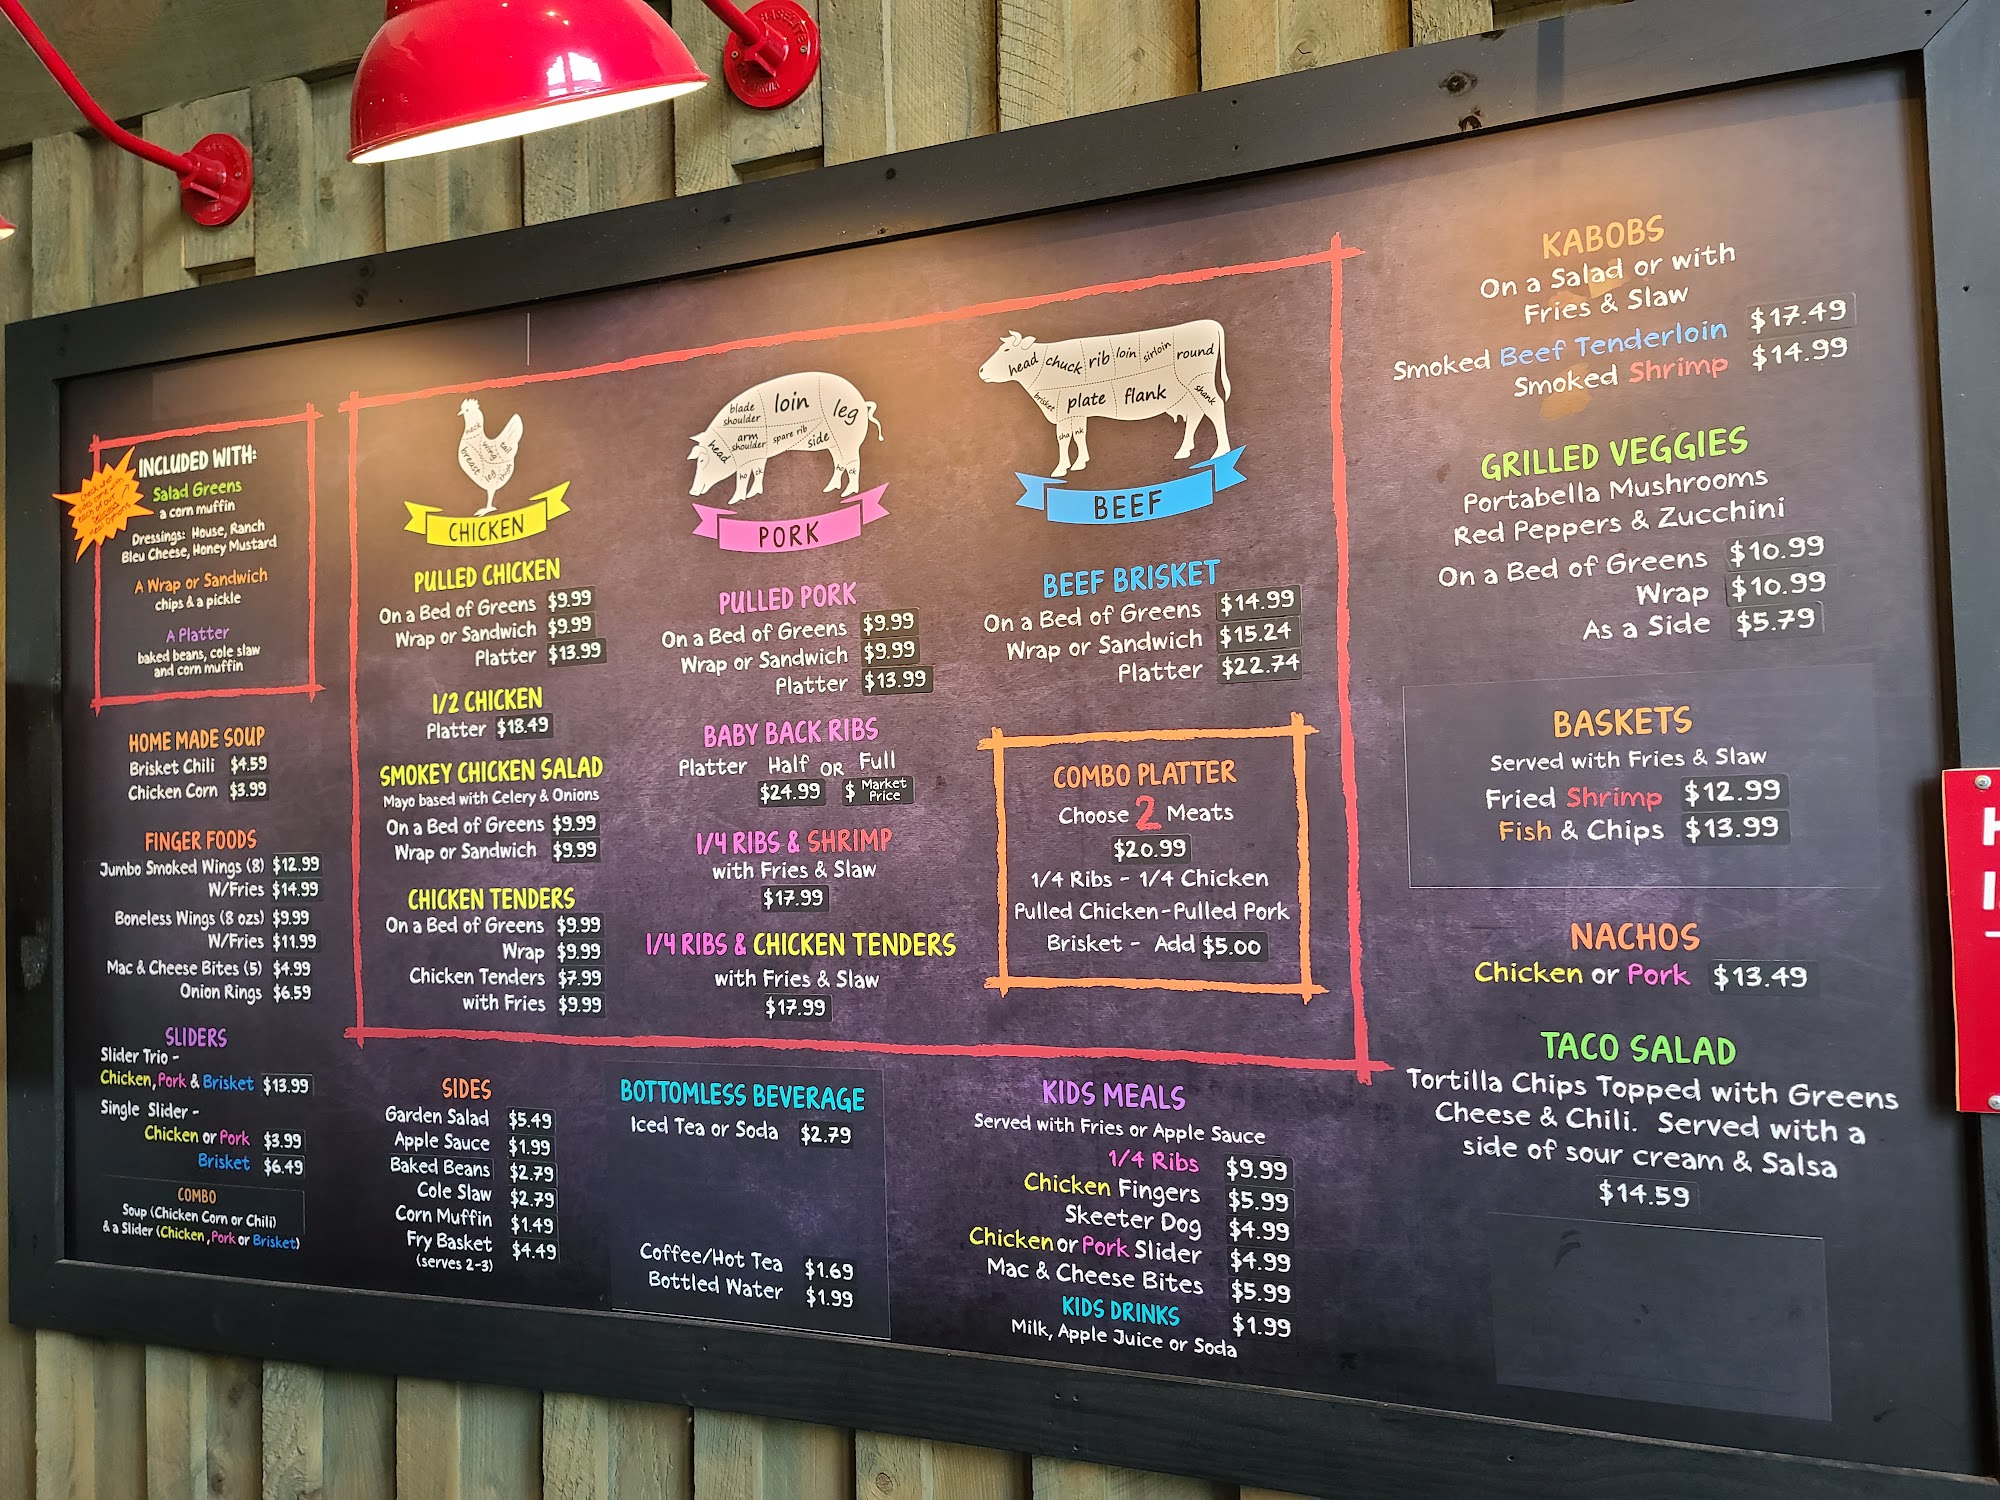 INCLUDED WITH:
Salad Greens
a corn muffin
Dressings: House, Ranch
Bleu Cheese, Honey Mustard
A Wrap or Sandwich
chips & a pickle
A Platter
baked beans, cole slaw
and corn muffin
HOME MADE SOUP
Brisket Chili $4.59
Chicken Corn $3.99
FINGER FOODS
Jumbo Smoked Wings (8) $12.99
W/Fries $14.99
Boneless Wings (8 ozs) $9.99
W/Fries $11.99
Mac & Cheese Bites (5) $4.99
Onion Rings $6.59
SLIDERS
Slider Trio -
Chicken, Pork & Brisket $13.99
Single Slider -
Chicken or Pork $3.99
Brisket $6.49
COMBO
Soup (Chicken Corn or Chili)
& a Slider (Chicken, Pork or Brisket)
neck
wing
tail
breast
leg
CHICKEN
PULLED CHICKEN
On a Bed of Greens $9.99
Wrap or Sandwich $9.99
Platter $13.99
1/2 CHICKEN
Platter $18.49
SMOKEY CHICKEN SALAD
Mayo based with Celery & Onions
On a Bed of Greens $9.99
Wrap or Sandwich $9.99
CHICKEN TENDERS
On a Bed of Greens $9.99
Wrap $9.99
Chicken Tenders $7.99
with Fries $9.99
head
blade
shoulder
loin
leg
arm
shoulder
spare rib
side
hock
hock
PORK
PULLED PORK
On a Bed of Greens $9.99
Wrap or Sandwich $9.99
Platter $13.99
BABY BACK RIBS
Platter Half OR Full
$24.99 $ Market
Price
1/4 RIBS & SHRIMP
with Fries & Slaw
$17.99
1/4 RIBS & CHICKEN TENDERS
with Fries & Slaw
$17.99
head chuck rib loin sirloin round
brisket plate flank shank
shank
BEEF
BEEF BRISKET
On a Bed of Greens $14.99
Wrap or Sandwich $15.24
Platter $22.74
COMBO PLATTER
Choose 2 Meats
$20.99
1/4 Ribs - 1/4 Chicken
Pulled Chicken-Pulled Pork
Brisket - Add $5.00
SIDES
Garden Salad $5.49
Apple Sauce $1.99
Baked Beans $2.79
Cole Slaw $2.79
Corn Muffin $1.49
Fry Basket $4.49
(serves 2-3)
BOTTOMLESS BEVERAGE
Iced Tea or Soda $2.79
Coffee/Hot Tea $1.69
Bottled Water $1.99
KIDS MEALS
Served with Fries or Apple Sauce
1/4 Ribs $9.99
Chicken Fingers $5.99
Skeeter Dog $4.99
Chicken or Pork Slider $4.99
Mac & Cheese Bites $5.99
KIDS DRINKS $1.99
Milk, Apple Juice or Soda
KABOBS
On a Salad or with
Fries & Slaw
Smoked Beef Tenderloin $17.49
Smoked Shrimp $14.99
GRILLED VEGGIES
Portabella Mushrooms
Red Peppers & Zucchini
On a Bed of Greens $10.99
Wrap $10.99
As a Side $5.79
BASKETS
Served with Fries & Slaw
Fried Shrimp $12.99
Fish & Chips $13.99
NACHOS
Chicken or Pork $13.49
TACO SALAD
Tortilla Chips Topped with Greens
Cheese & Chili. Served with a
side of sour cream & Salsa
$14.59